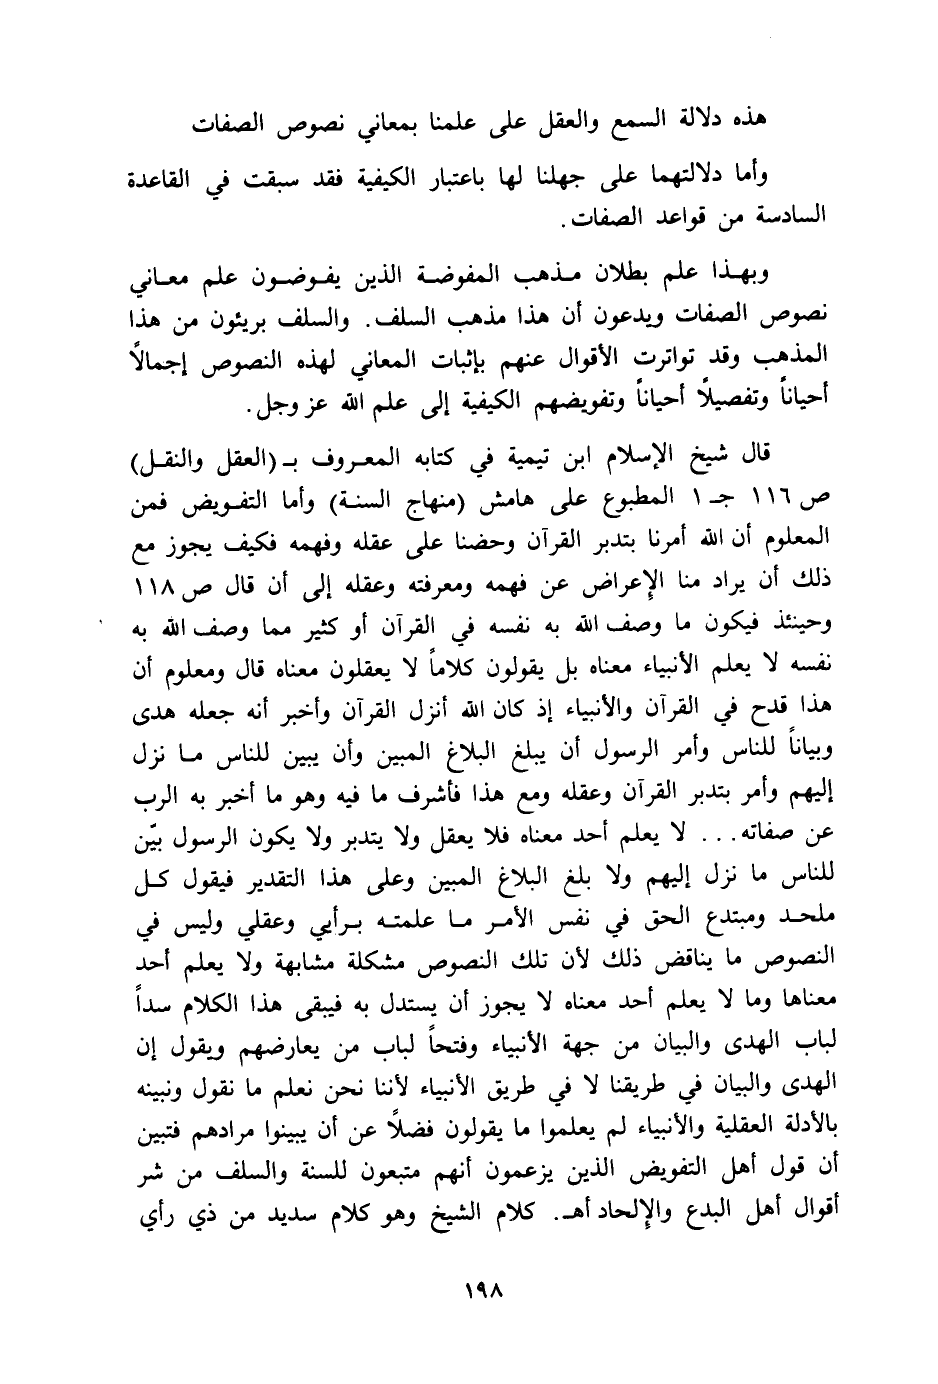 هذه دلالة السمع والعقل على علمنا بمعاني نصوص الصفات
وأما دلالتهما على جهلنا لها باعتبار الكيفية فقد سبقت في القاعدة
السادسة من قواعد الصفات.
وبهذا علم بطلان مذهب المفوضة الذين يفوضون علم معاني
نصوص الصفات ويدعون أن هذا مذهب السلف. والسلف بريئون من هذا
المذهب وقد تواترت الأقوال عنهم بإثبات المعاني لهذه النصوص إجمالاً
أحياناً وتفصيلاً أحياناً وتفويضهم الكيفية إلى علم الله عز وجل.
قال شيخ الإسلام ابن تيمية في كتابه المعروف بـ (العقل والنقل)
ص ١١٦ جـ ١ المطبوع على هامش (منهاج السنة) وأما التفويض فمن
المعلوم أن الله أمرنا بتدبر القرآن وحضنا على عقله وفهمه فكيف يجوز مع
ذلك أن يراد منا الإعراض عن فهمه ومعرفته وعقله إلى أن قال ص ١١٨
وحينئذ فيكون ما وصف الله به نفسه في القرآن أو كثير مما وصف الله به
نفسه لا يعلم الأنبياء معناه بل يقولون كلاماً لا يعقلون معناه قال ومعلوم أن
هذا قدح في القرآن والأنبياء إذ كان الله أنزل القرآن وأخبر أنه جعله هدى
وبياناً للناس وأمر الرسول أن يبلغ البلاغ المبين وأن يبين للناس ما نزل
إليهم وأمر بتدبر القرآن وعقله ومع هذا فأشرف ما فيه وهو ما أخبر به الرب
عن صفاته... لا يعلم أحد معناه فلا يعقل ولا يتدبر ولا يكون الرسول بيّن
للناس ما نزل إليهم ولا بلغ البلاغ المبين وعلى هذا التقدير فيقول كل
ملحد ومبتدع الحق في نفس الأمر ما علمته برأيي وعقلي وليس في
النصوص ما يناقض ذلك لأن تلك النصوص مشكلة مشابهة ولا يعلم أحد
معناها وما لا يعلم أحد معناه لا يجوز أن يستدل به فيبقى هذا الكلام سداً
لباب الهدى والبيان من جهة الأنبياء وفتحاً لباب من يعارضهم ويقول إن
الهدى والبيان في طريقنا لا في طريق الأنبياء لأننا نحن نعلم ما نقول ونبينه
بالأدلة العقلية والأنبياء لم يعلموا ما يقولون فضلاً عن أن يبينوا مرادهم فتبين
أن قول أهل التفويض الذين يزعمون أنهم متبعون للسنة والسلف من شر
أقوال أهل البدع والإلحاد أهـ. كلام الشيخ وهو كلام سديد من ذي رأي
١٩٨